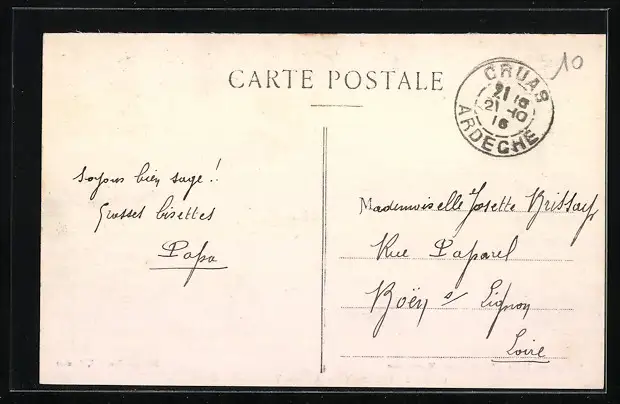 CARTE POSTALE
10
CRUAS
21 16
21 -10
16
ARDECHE
Soyons bien sage!!
Grosses bisettes
Papa
Mademoiselle Josette
Rue Paparel
Boën s/ Lignon
Loire